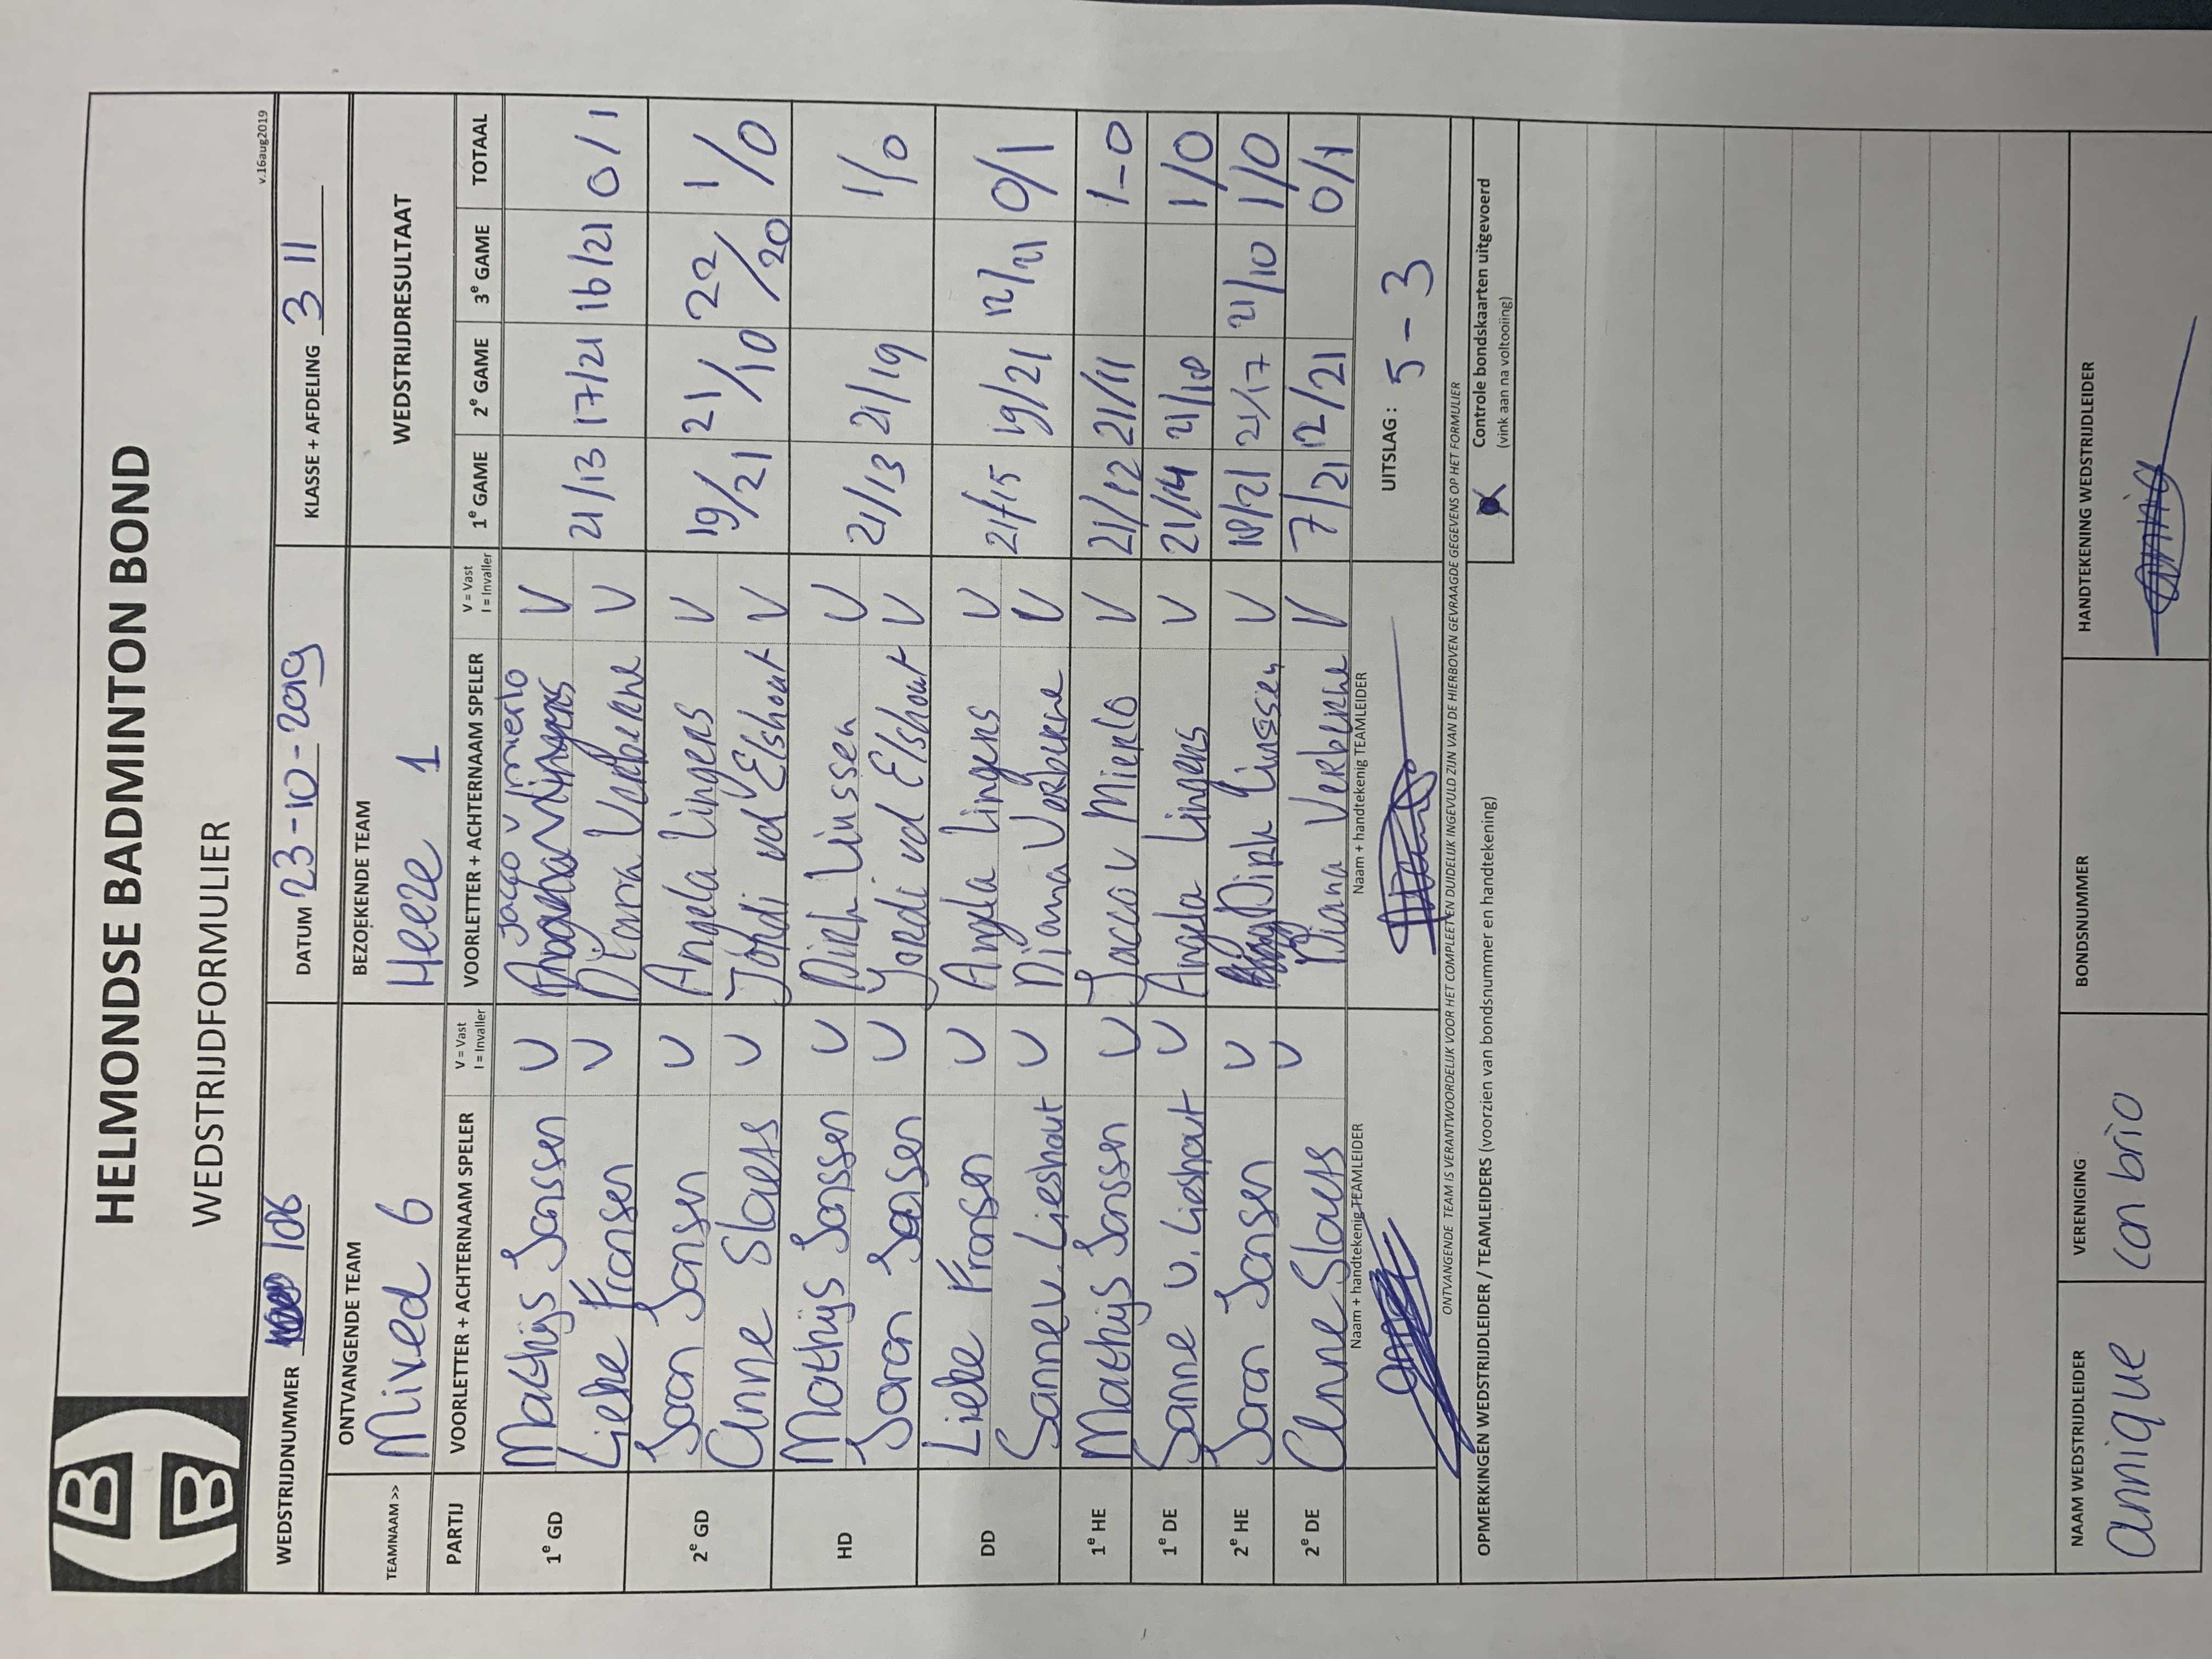 HELMONDSE BADMINTON BOND
WEDSTRIJDFORMULIER
v.16aug2019
WEDSTRIJDNUMMER 106 DATUM 23-10-2019 KLASSE + AFDELING 3 11
ONTVANGENDE TEAM BEZOEKENDE TEAM WEDSTRIJDRESULTAAT
TEAMNAAM >> Mixed 6 Heeze 1
PARTIJ VOORLETTER + ACHTERNAAM SPELER V = Vast I = Invaller VOORLETTER + ACHTERNAAM SPELER V = Vast I = Invaller 1e GAME 2e GAME 3e GAME TOTAAL
1e GD Mathijs Janssen V Jacco v Mierlo V 21/13 17/21 16/21 0/1
Lieke Fransen V Diana Verberne V
2e GD Joran Jansen V Angela Lingers V 19/21 21/10 22/20 1/0
Anne Slaets V Jordi vd Elshout V
HD Mathijs Janssen V Dirk Linssen V 21/13 21/19 1/0
Joran Jansen V Jordi vd Elshout V
DD Lieke Fransen V Angela Lingers V 21/15 19/21 12/21 0/1
Sanne v. Lieshout V Diana Verberne V
1e HE Mathijs Janssen V Jacco v Mierlo V 21/12 21/11 1-0
1e DE Sanne v. Lieshout V Angela Lingers V 21/14 21/18 1/0
2e HE Joran Jansen V Dirk Linssen V 18/21 21/17 21/10 1/0
2e DE Anne Slaets V Diana Verberne V 7/21 12/21 0/1
Naam + handtekenig TEAMLEIDER Naam + handtekenig TEAMLEIDER UITSLAG: 5 - 3
ONTVANGENDE TEAM IS VERANTWOORDELIJK VOOR HET COMPLEET EN DUIDELIJK INGEVULD ZIJN VAN DE HIERBOVEN GEVRAAGDE GEGEVENS OP HET FORMULIER
OPMERKINGEN WEDSTRIJDLEIDER / TEAMLEIDERS (voorzien van bondsnummer en handtekening) X Controle bondskaarten uitgevoerd
(vink aan na voltooiing)
NAAM WEDSTRIJDLEIDER VERENIGING BONDSNUMMER HANDTEKENING WEDSTRIJDLEIDER
annique con brio